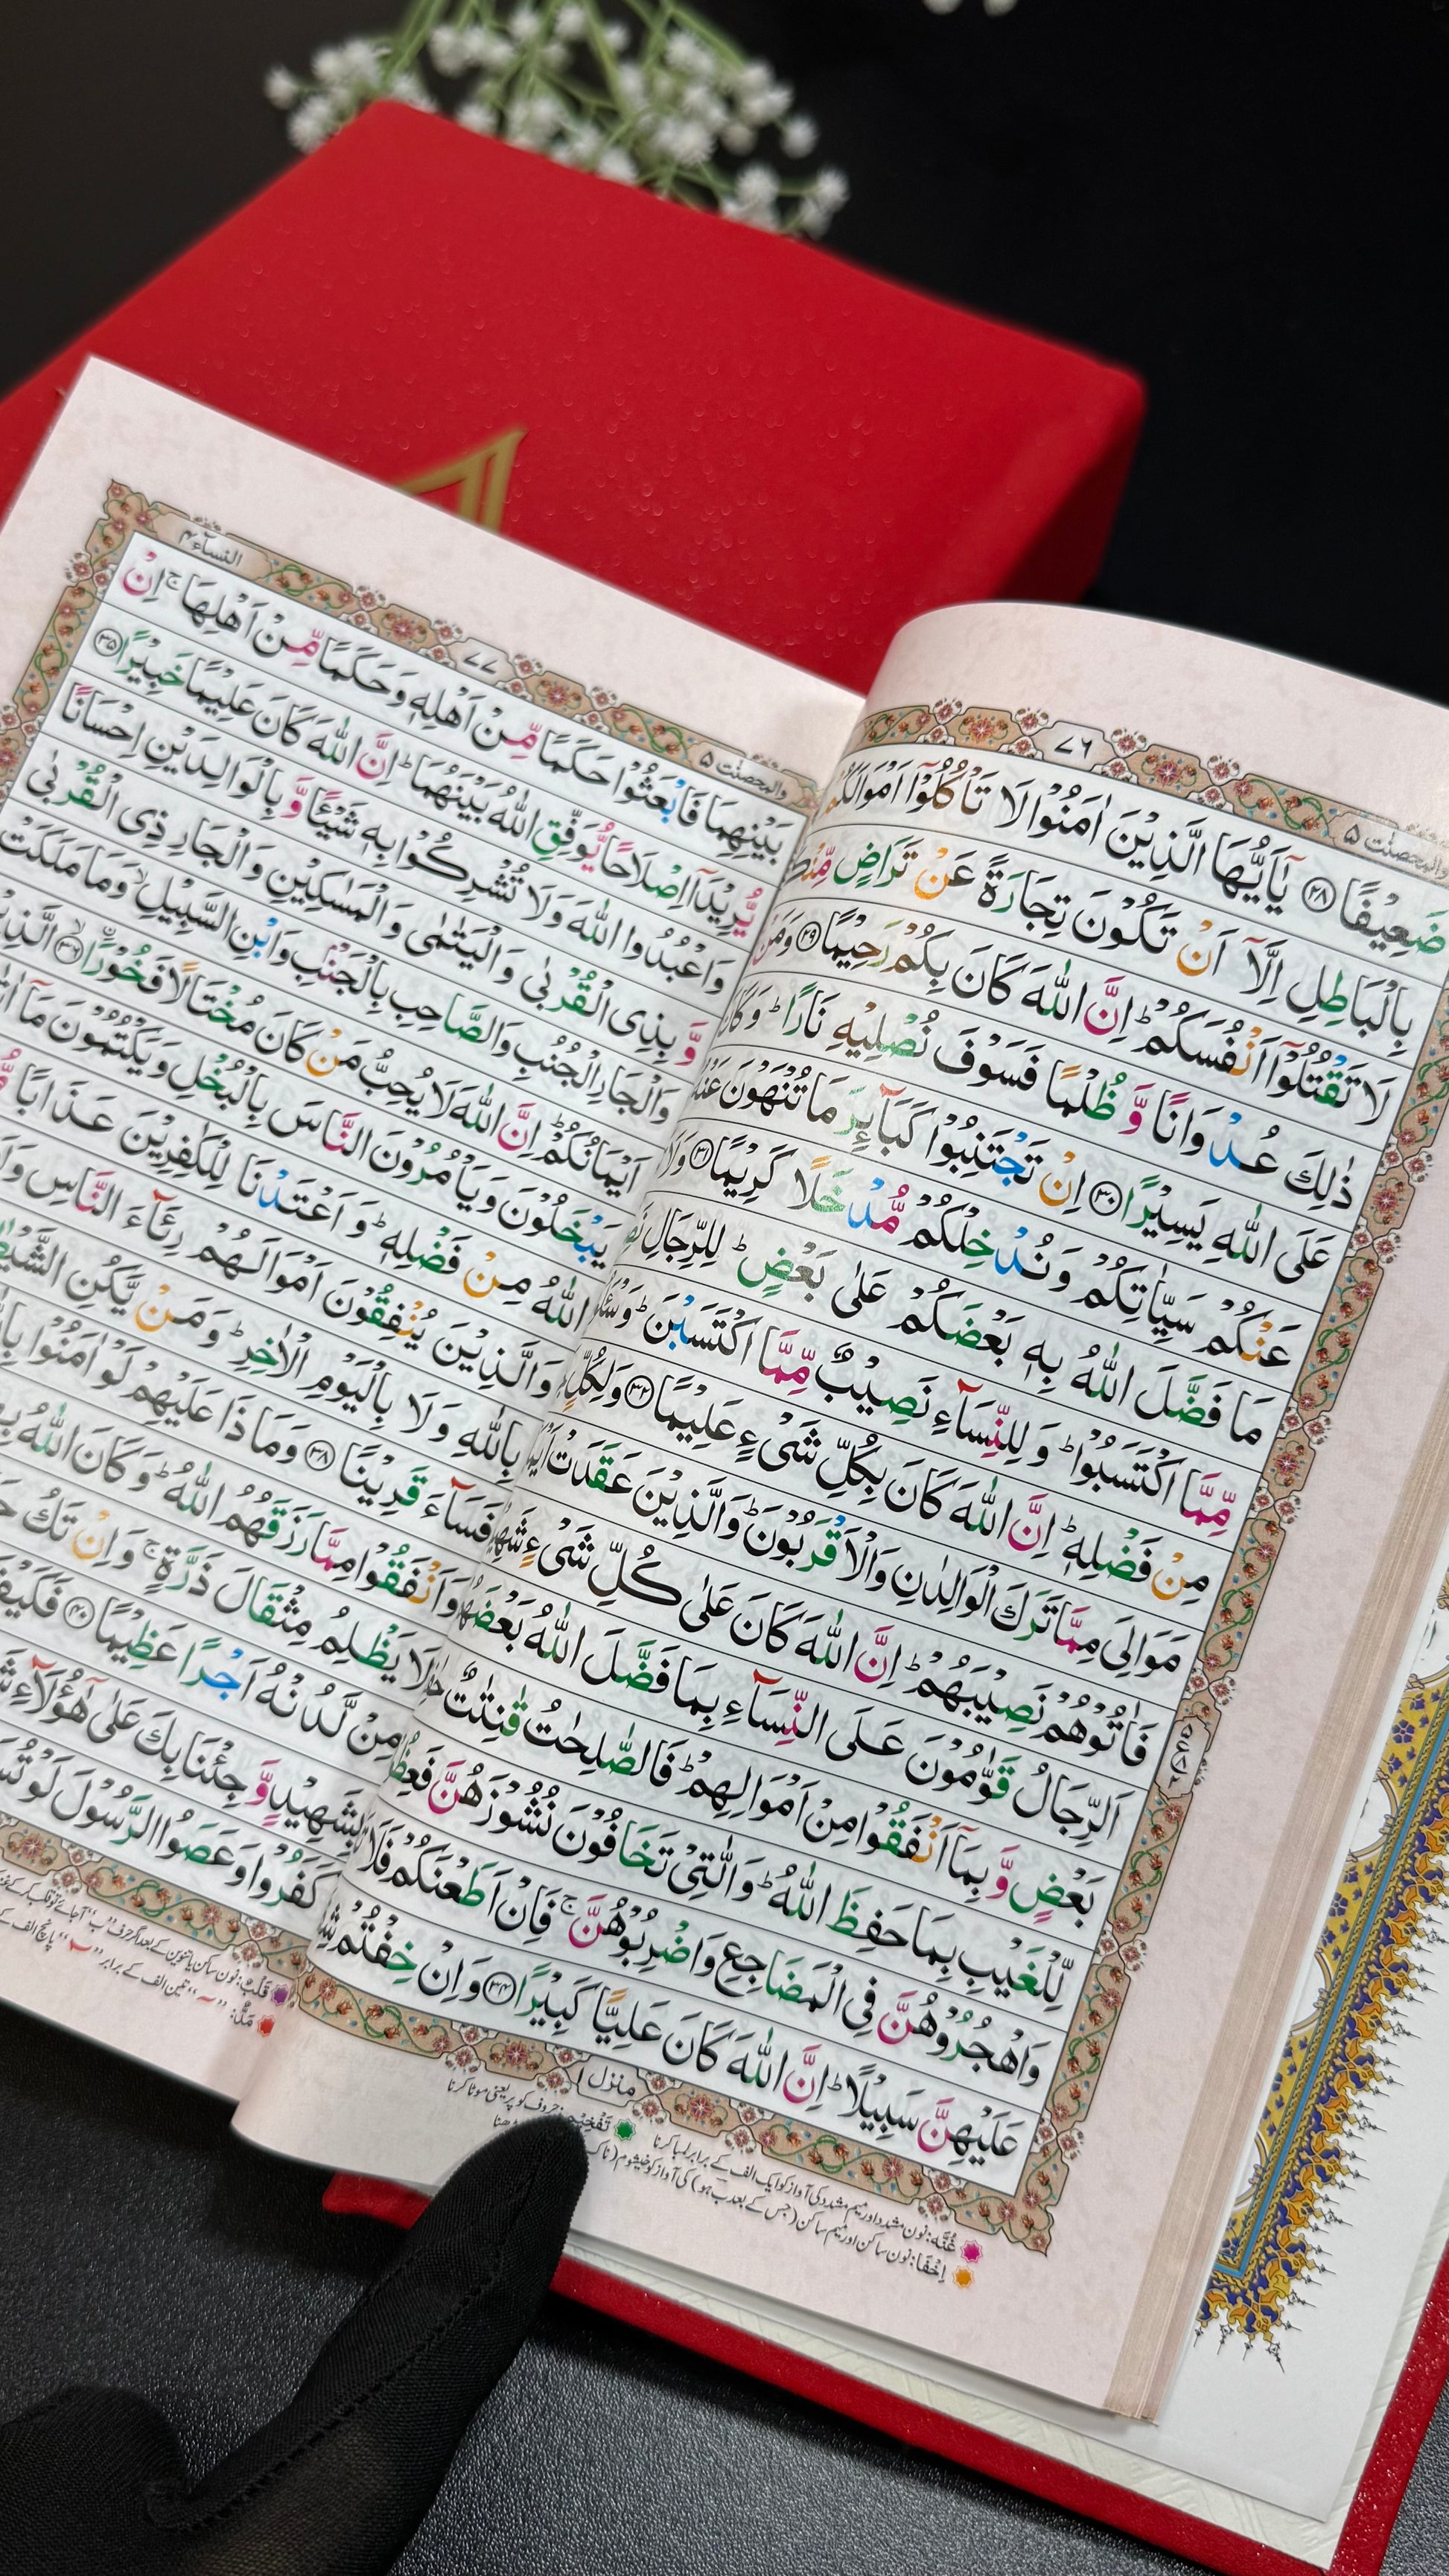 ٧٦
والمحصنٰت ٥
ضَعِيْفًا ﴿٢٨﴾ يٰۤاَيُّهَا الَّذِيْنَ اٰمَنُوْا لَا تَاْكُلُوْۤا اَمْوَالَكُمْ
بِالْبَاطِلِ اِلَّاۤ اَنْ تَكُوْنَ تِجَارَةً عَنْ تَرَاضٍ مِّنْكُمْ
لَا تَقْتُلُوْۤا اَنْفُسَكُمْ ؕ اِنَّ اللّٰهَ كَانَ بِكُمْ رَحِيْمًا ﴿٢٩﴾ وَمَنْ
ذٰلِكَ عُدْوَانًا وَّظُلْمًا فَسَوْفَ نُصْلِيْهِ نَارًا ؕ وَكَانَ
عَلَى اللّٰهِ يَسِيْرًا ﴿٣٠﴾ اِنْ تَجْتَنِبُوْا كَبَآىِٕرَ مَا تُنْهَوْنَ عَنْهُ
عَنْكُمْ سَيِّاٰتِكُمْ وَنُدْخِلْكُمْ مُّدْخَلًا كَرِيْمًا ﴿٣١﴾ وَلَا
مَا فَضَّلَ اللّٰهُ بِهٖ بَعْضَكُمْ عَلٰى بَعْضٍ ؕ لِلرِّجَالِ
مِّمَّا اكْتَسَبُوْا ؕ وَلِلنِّسَآءِ نَصِيْبٌ مِّمَّا اكْتَسَبْنَ ؕ
مِنْ فَضْلِهٖ ؕ اِنَّ اللّٰهَ كَانَ بِكُلِّ شَىْءٍ عَلِيْمًا ﴿٣٢﴾ وَلِكُلٍّ
مَوَالِىَ مِمَّا تَرَكَ الْوَالِدٰنِ وَالْاَقْرَبُوْنَ ؕ وَالَّذِيْنَ عَقَدَتْ
فَاٰتُوْهُمْ نَصِيْبَهُمْ ؕ اِنَّ اللّٰهَ كَانَ عَلٰى كُلِّ شَىْءٍ
اَلرِّجَالُ قَوّٰمُوْنَ عَلَى النِّسَآءِ بِمَا فَضَّلَ اللّٰهُ بَعْضَهُمْ
بَعْضٍ وَّبِمَاۤ اَنْفَقُوْا مِنْ اَمْوَالِهِمْ ؕ فَالصّٰلِحٰتُ قٰنِتٰتٌ
لِّلْغَيْبِ بِمَا حَفِظَ اللّٰهُ ؕ وَالّٰتِىْ تَخَافُوْنَ نُشُوْزَهُنَّ
وَاهْجُرُوْهُنَّ فِى الْمَضَاجِعِ وَاضْرِبُوْهُنَّ ۚ فَاِنْ اَطَعْنَكُمْ فَلَا
عَلَيْهِنَّ سَبِيْلًا ؕ اِنَّ اللّٰهَ كَانَ عَلِيًّا كَبِيْرًا ﴿٣٤﴾ وَاِنْ خِفْتُمْ
منزل
غُنَّه: نون مشدد اور میم مشدد کی آواز کو ایک الف کے برابر لمبا کرنا
اِخفَا: نون ساکن اور میم ساکن (جس کے بعد ب ہو) کی آواز کو خیشوم
حروف کو پُر یعنی موٹا کرنا
النسآء ٤
٧٧
والمحصنٰت ٥
بَيْنِهِمَا فَابْعَثُوْا حَكَمًا مِّنْ اَهْلِهٖ وَحَكَمًا مِّنْ اَهْلِهَا ۚ اِنْ
يُّرِيْدَاۤ اِصْلَاحًا يُّوَفِّقِ اللّٰهُ بَيْنَهُمَا ؕ اِنَّ اللّٰهَ كَانَ عَلِيْمًا خَبِيْرًا ﴿٣٥﴾
وَاعْبُدُوا اللّٰهَ وَلَا تُشْرِكُوْا بِهٖ شَيْـًٔا وَّبِالْوَالِدَيْنِ اِحْسَانًا
وَّبِذِى الْقُرْبٰى وَالْيَتٰمٰى وَالْمَسٰكِيْنِ وَالْجَارِ ذِى الْقُرْبٰى
وَالْجَارِ الْجُنُبِ وَالصَّاحِبِ بِالْجَنْۢبِ وَابْنِ السَّبِيْلِ ۙ وَمَا مَلَكَتْ
اَيْمَانُكُمْ ؕ اِنَّ اللّٰهَ لَا يُحِبُّ مَنْ كَانَ مُخْتَالًا فَخُوْرًا ﴿٣٦﴾
يَبْخَلُوْنَ وَيَاْمُرُوْنَ النَّاسَ بِالْبُخْلِ وَيَكْتُمُوْنَ مَاۤ
اللّٰهُ مِنْ فَضْلِهٖ ؕ وَاَعْتَدْنَا لِلْكٰفِرِيْنَ عَذَابًا
وَالَّذِيْنَ يُنْفِقُوْنَ اَمْوَالَهُمْ رِئَآءَ النَّاسِ
بِاللّٰهِ وَلَا بِالْيَوْمِ الْاٰخِرِ ؕ وَمَنْ يَّكُنِ
فَسَآءَ قَرِيْنًا ﴿٣٨﴾ وَمَا ذَا عَلَيْهِمْ لَوْ اٰمَنُوْا
وَاَنْفَقُوْا مِمَّا رَزَقَهُمُ اللّٰهُ ؕ وَكَانَ اللّٰهُ
لَا يَظْلِمُ مِثْقَالَ ذَرَّةٍ ۚ وَاِنْ تَكُ
مِنْ لَّدُنْهُ اَجْرًا عَظِيْمًا ﴿٤٠﴾ فَكَيْفَ
بِشَهِيْدٍ وَّجِئْنَا بِكَ عَلٰى هٰۤؤُلَآءِ
كَفَرُوْا وَعَصَوُا الرَّسُوْلَ لَوْ
قلب: نون ساکن یا تنوین کے بعد اگر حرف "ب" آجائے تو
مَدّ: تین الف کے برابر